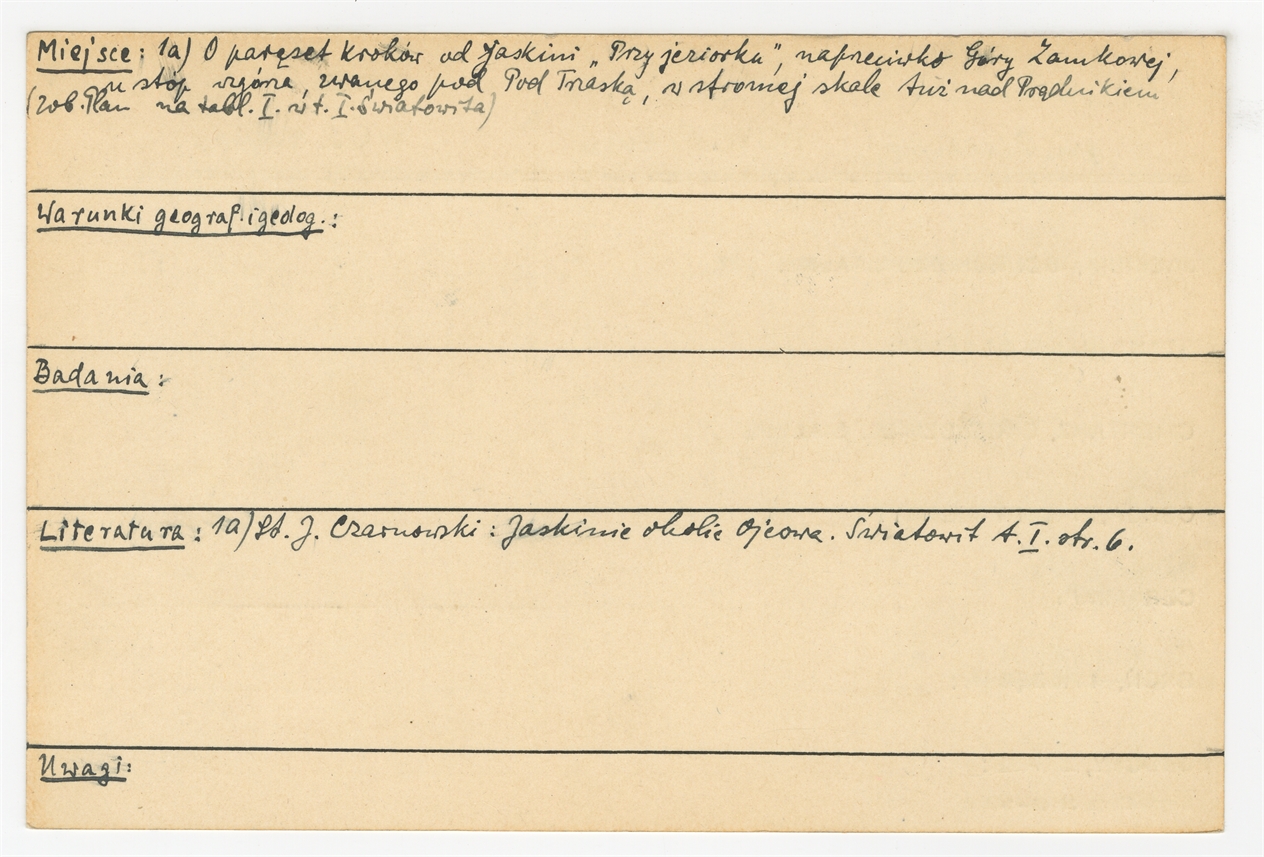 Miejsce: 1a) O paręset kroków od jaskini „Przy jeziorku", naprzeciwko Góry Zamkowej,
u stóp wzgórza, zwanego pod Pod Traską, w stromej skale tuż nad Prądnikiem
(zob. Plan na tabl. I. w t. I. Światowita)
Warunki geograf. i geolog.:
Badania:
Literatura: 1a) St. J. Czarnowski: Jaskinie okolic Ojcowa. Światowit t. I. str. 6.
Uwagi: